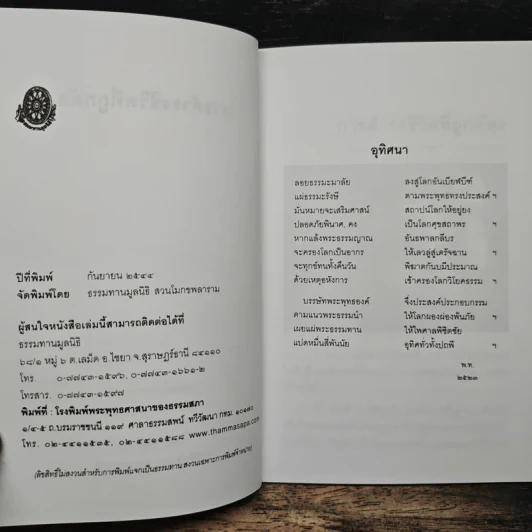 ปีที่พิมพ์ กันยายน ๒๕๔๔
จัดพิมพ์โดย ธรรมทานมูลนิธิ สวนโมกขพลาราม
ผู้สนใจหนังสือเล่มนี้สามารถติดต่อได้ที่
ธรรมทานมูลนิธิ
๖๘/๑ หมู่ ๖ ต.เลม็ด อ.ไชยา จ.สุราษฎร์ธานี ๘๔๑๑๐
โทร. ๐-๗๗๔๓-๑๕๙๖, ๐-๗๗๔๓-๑๖๖๑-๒
โทรสาร. ๐-๗๗๔๓-๑๕๙๗
พิมพ์ที่ : โรงพิมพ์พระพุทธศาสนาของธรรมสภา
๑/๔-๕ ถ.บรมราชชนนี ๑๑๙ ศาลาธรรมสพน์ ทวีวัฒนา กทม. ๑๐๑๗๐
โทร. ๐๒-๔๔๑๑๕๓๕, ๐๒-๔๔๑๑๕๘๘ www.thammasapa.com
(ลิขสิทธิ์ไม่สงวนสำหรับการพิมพ์แจกเป็นธรรมทาน สงวนเฉพาะการพิมพ์จำหน่าย)
อุทิศนา
ลอยธรรมะมาลัย ลงสู่โลกอันเบียฬบีฑ์
แผ่ธรรมะรังษี ตามพระพุทธทรงประสงค์ ฯ
มั่นหมายจะเสริมศาสน์ สถาปน์โลกให้อยู่ยง
ปลอดภัยพินาศ, คง เป็นโลกศุขสถาพร ฯ
หากแล้งพระธรรมญาณ อันธพาลกลีบร
จะครองโลกเป็นอากร ให้เลวลู่สู่เดรัจฉาน ฯ
จะทุกข์ทนทั้งคืนวัน พิฆาตกันบมีประมาณ
ด้วยเหตุอหังการ เข้าครองโลกวิโยคธรรม ฯ
บรรษัทพระพุทธองค์ จึ่งประสงค์ประกอบกรรม
ตามแนวพระธรรมนำ ให้โลกผองผ่องพ้นภัย ฯ
เผยแผ่พระธรรมทาน ให้ไพศาลพิชิตชัย
แปดหมื่นสี่พันนัย อุทิศทั่วทั้งปถพี ฯ
พ.ท.
๒๕๒๓